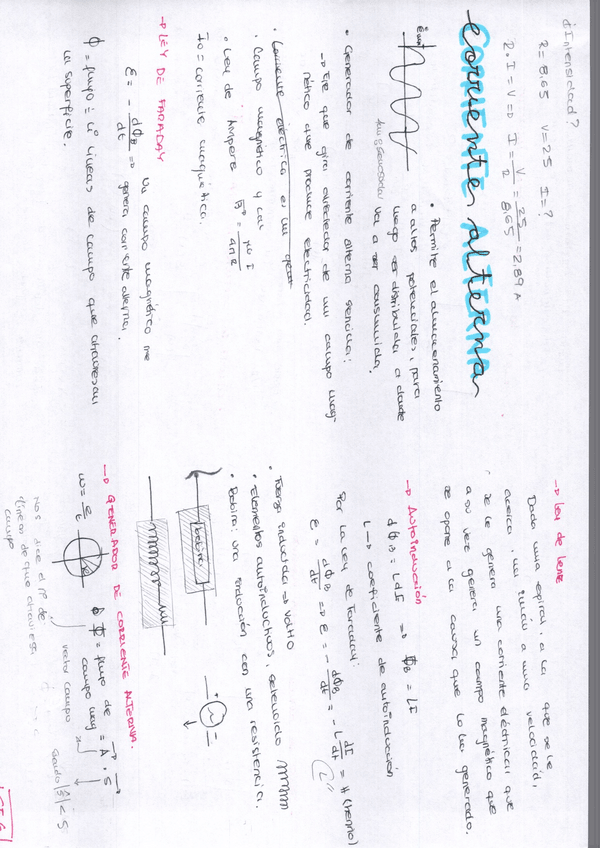 ¿Intensidad?
R = 8.65 V = 25 I = ?
R · I = V => I = V/R = 25/8.65 = 2.89 A
Corriente alterna
CORRIENTE ALTERNA
• Permite el almacenamiento
a altos potenciales, para
luego ser distribuida a donde
va a ser consumida.
• Generador de corriente alterna sencilla:
→ Eje que gira alrededor de un campo mag-
nético que produce electricidad.
• Corriente eléctrica es un
• Campo magnético y cal
• Ley de Ampere B = μo I / 4πR
Io = corriente magnética.
→ LEY DE FARADAY
ε = - dΦB/dt => un campo magnético me
genera corriente alterna.
Φ = flujo = nº líneas de campo que atraviesan
la superficie.
→ Ley de Lenz
Dada una espiral, a la que se le
acerca, un imán a una velocidad,
se le genera una corriente eléctrica que
a su vez genera un campo magnético que
se opone a la causa que lo ha generado.
→ Autoinducción
dΦB = L dI => ΦB = LI
L → coeficiente de autoinducción
Por la ley de Faraday:
ε = - dΦB/dt => ε = - dΦB/dt = - L dI/dt = H (henrio)
"L"
• Fuerza inducida => volt
• Elementos autoinductivos, selenoide
• Bobina: una inducción con una resistencia.
bobina
→ GENERADOR DE CORRIENTE ALTERNA.
Φ = flujo de
campo mag = A · S
vector campo
Nos dice el nº de
líneas de que atraviesa
campo